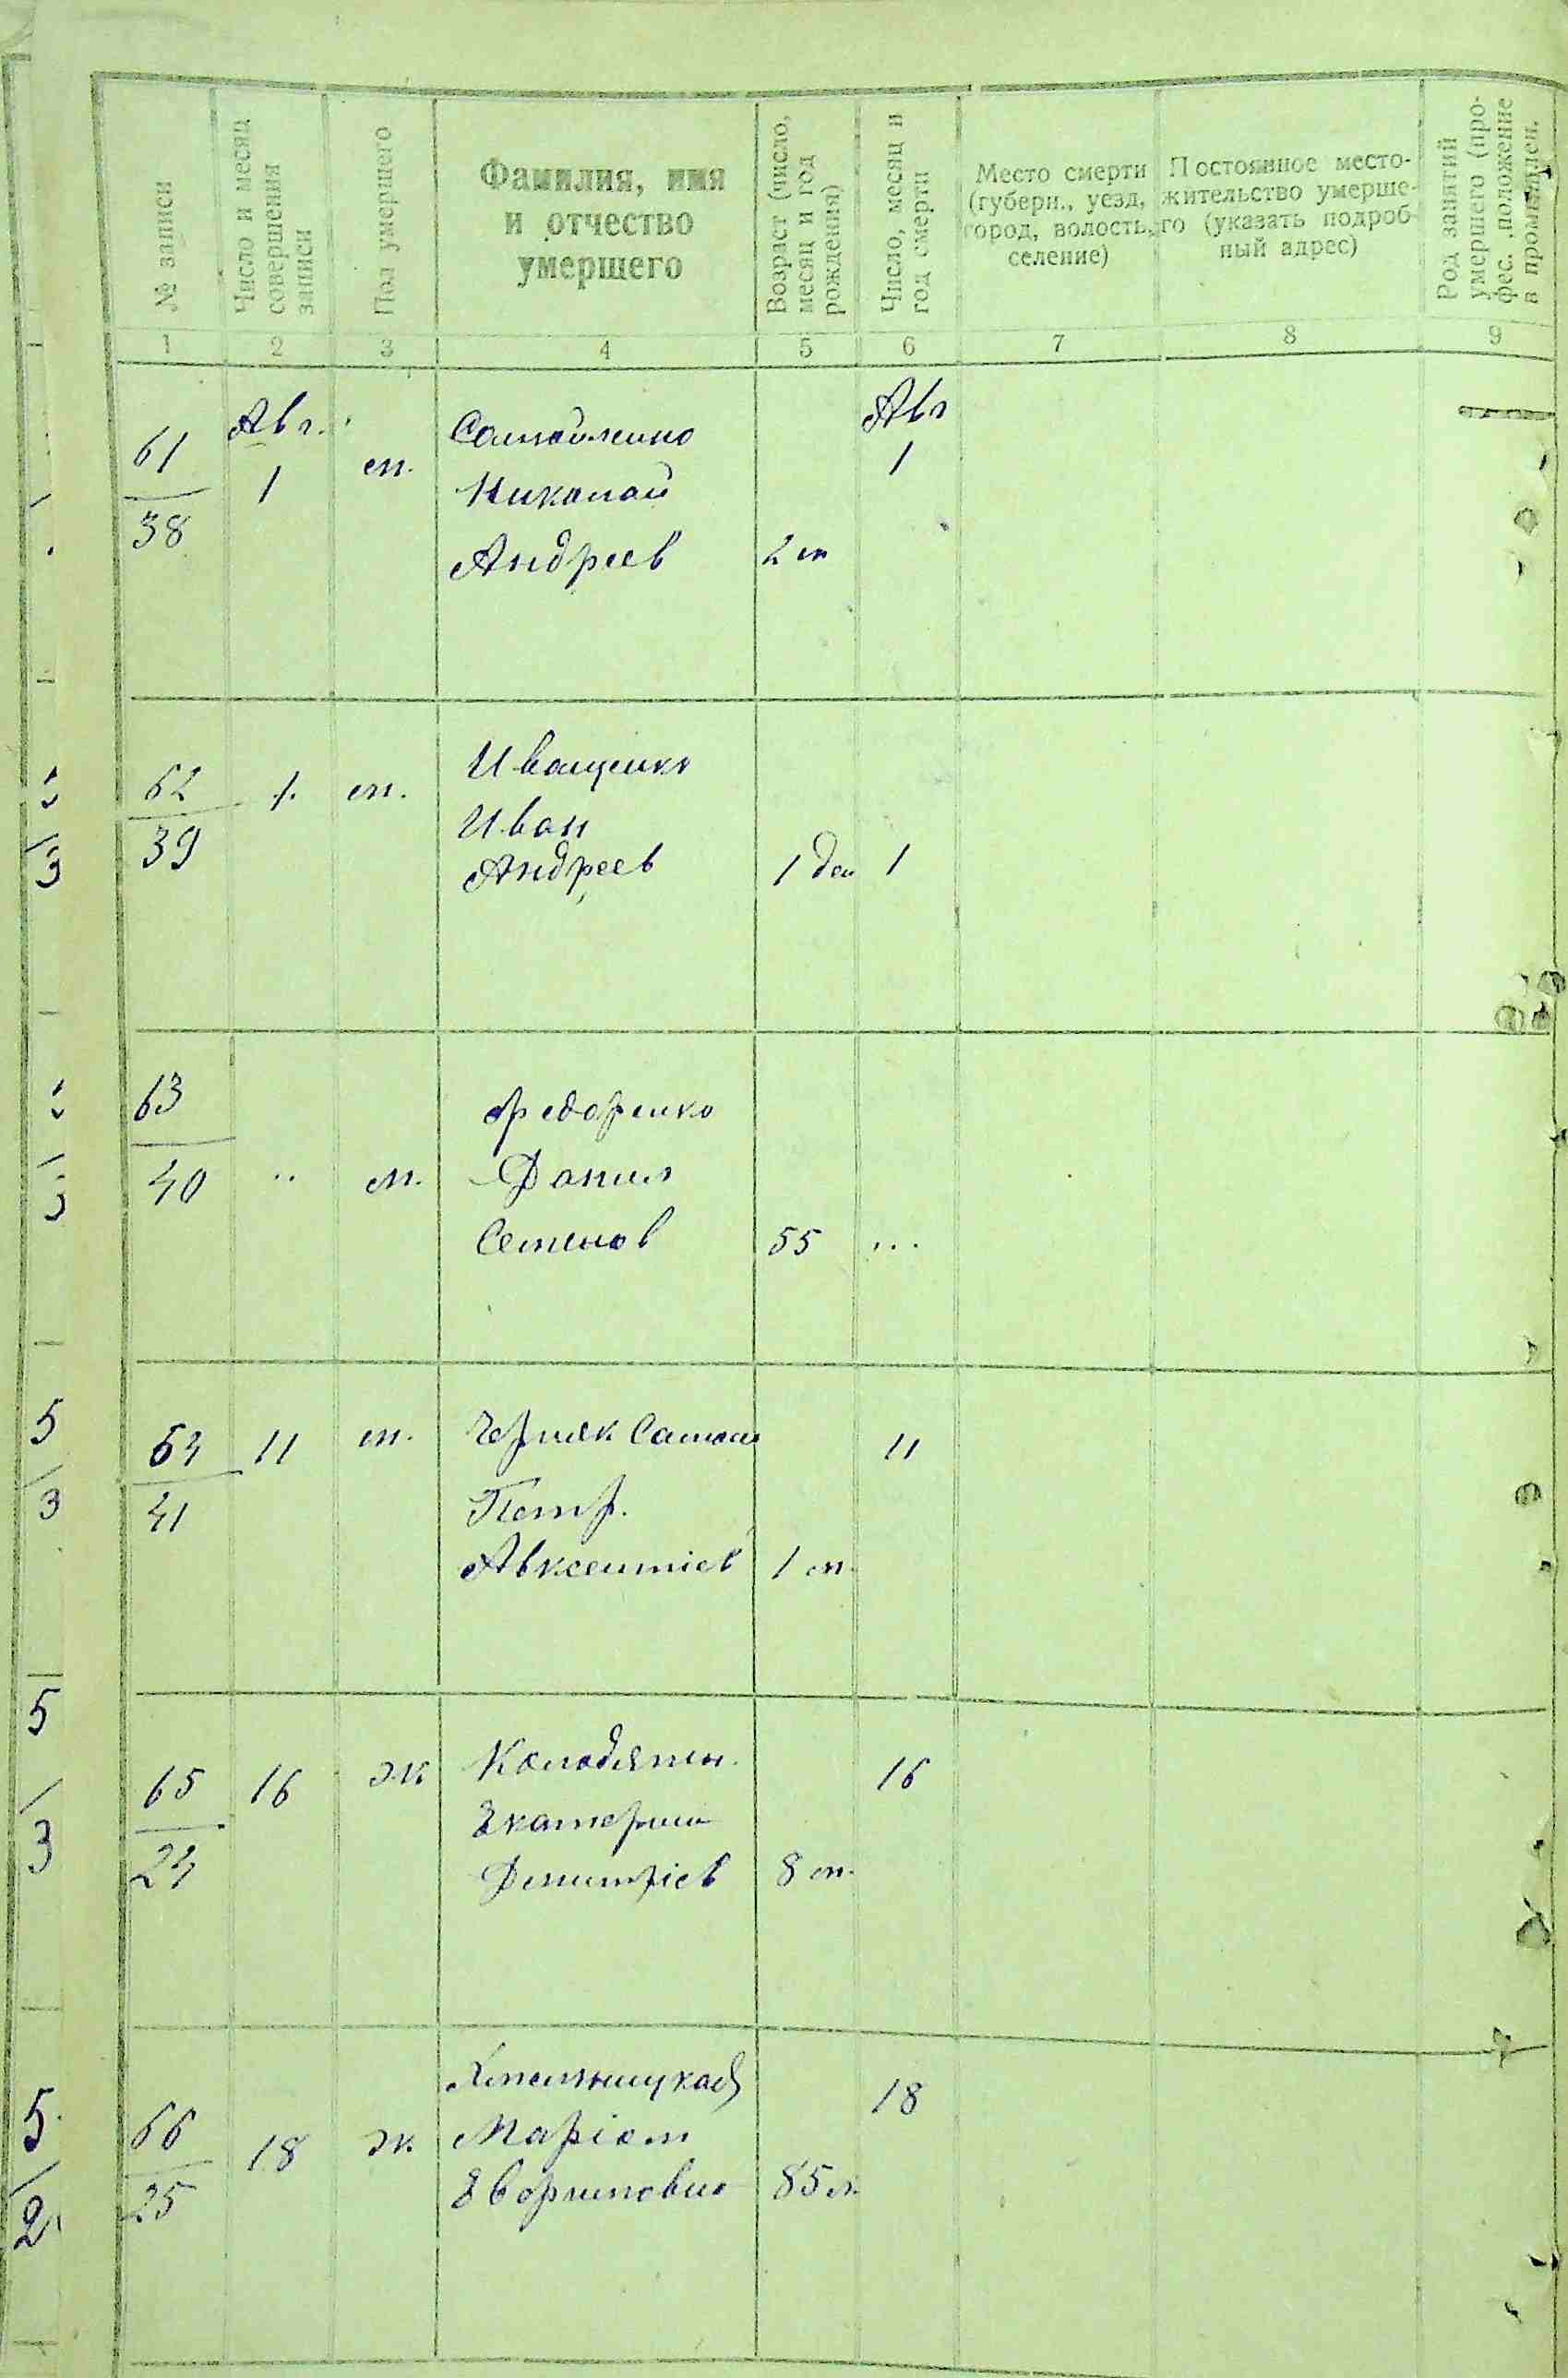 № записи
Число и месяц
совершения
записи
Пол умершего
Фамилия, имя
и отчество
умершего
Возраст (число,
месяц и год
рождения)
Число, месяц и
год смерти
Место смерти
(губерн., уезд,
город, волость,
селение)
Постоянное место-
жительство умерше-
го (указать подроб-
ный адрес)
Род занятий
умершего (про-
фес. положение
в промышлен.
1 2 3 4 5 6 7 8 9
61
38
Авг.
1
м.
Самойленко
Николай
Андреев
2 м
Авг
1
62
39
1.
м.
Иващенко
Иван
Андреев
1 ден
1
63
40
"
м.
Федоренко
Данил
Семенов
55
...
64
41
11
м.
Черняк Самои
Петр.
Авксентіев
1 м.
11
65
24
16
ж
Колодяжн.
Екатерин
Дмитріев
8 м.
16
66
25
18
ж.
Хмельницкая
Маріам
85 л.
18
5
3
5
3
5.
2